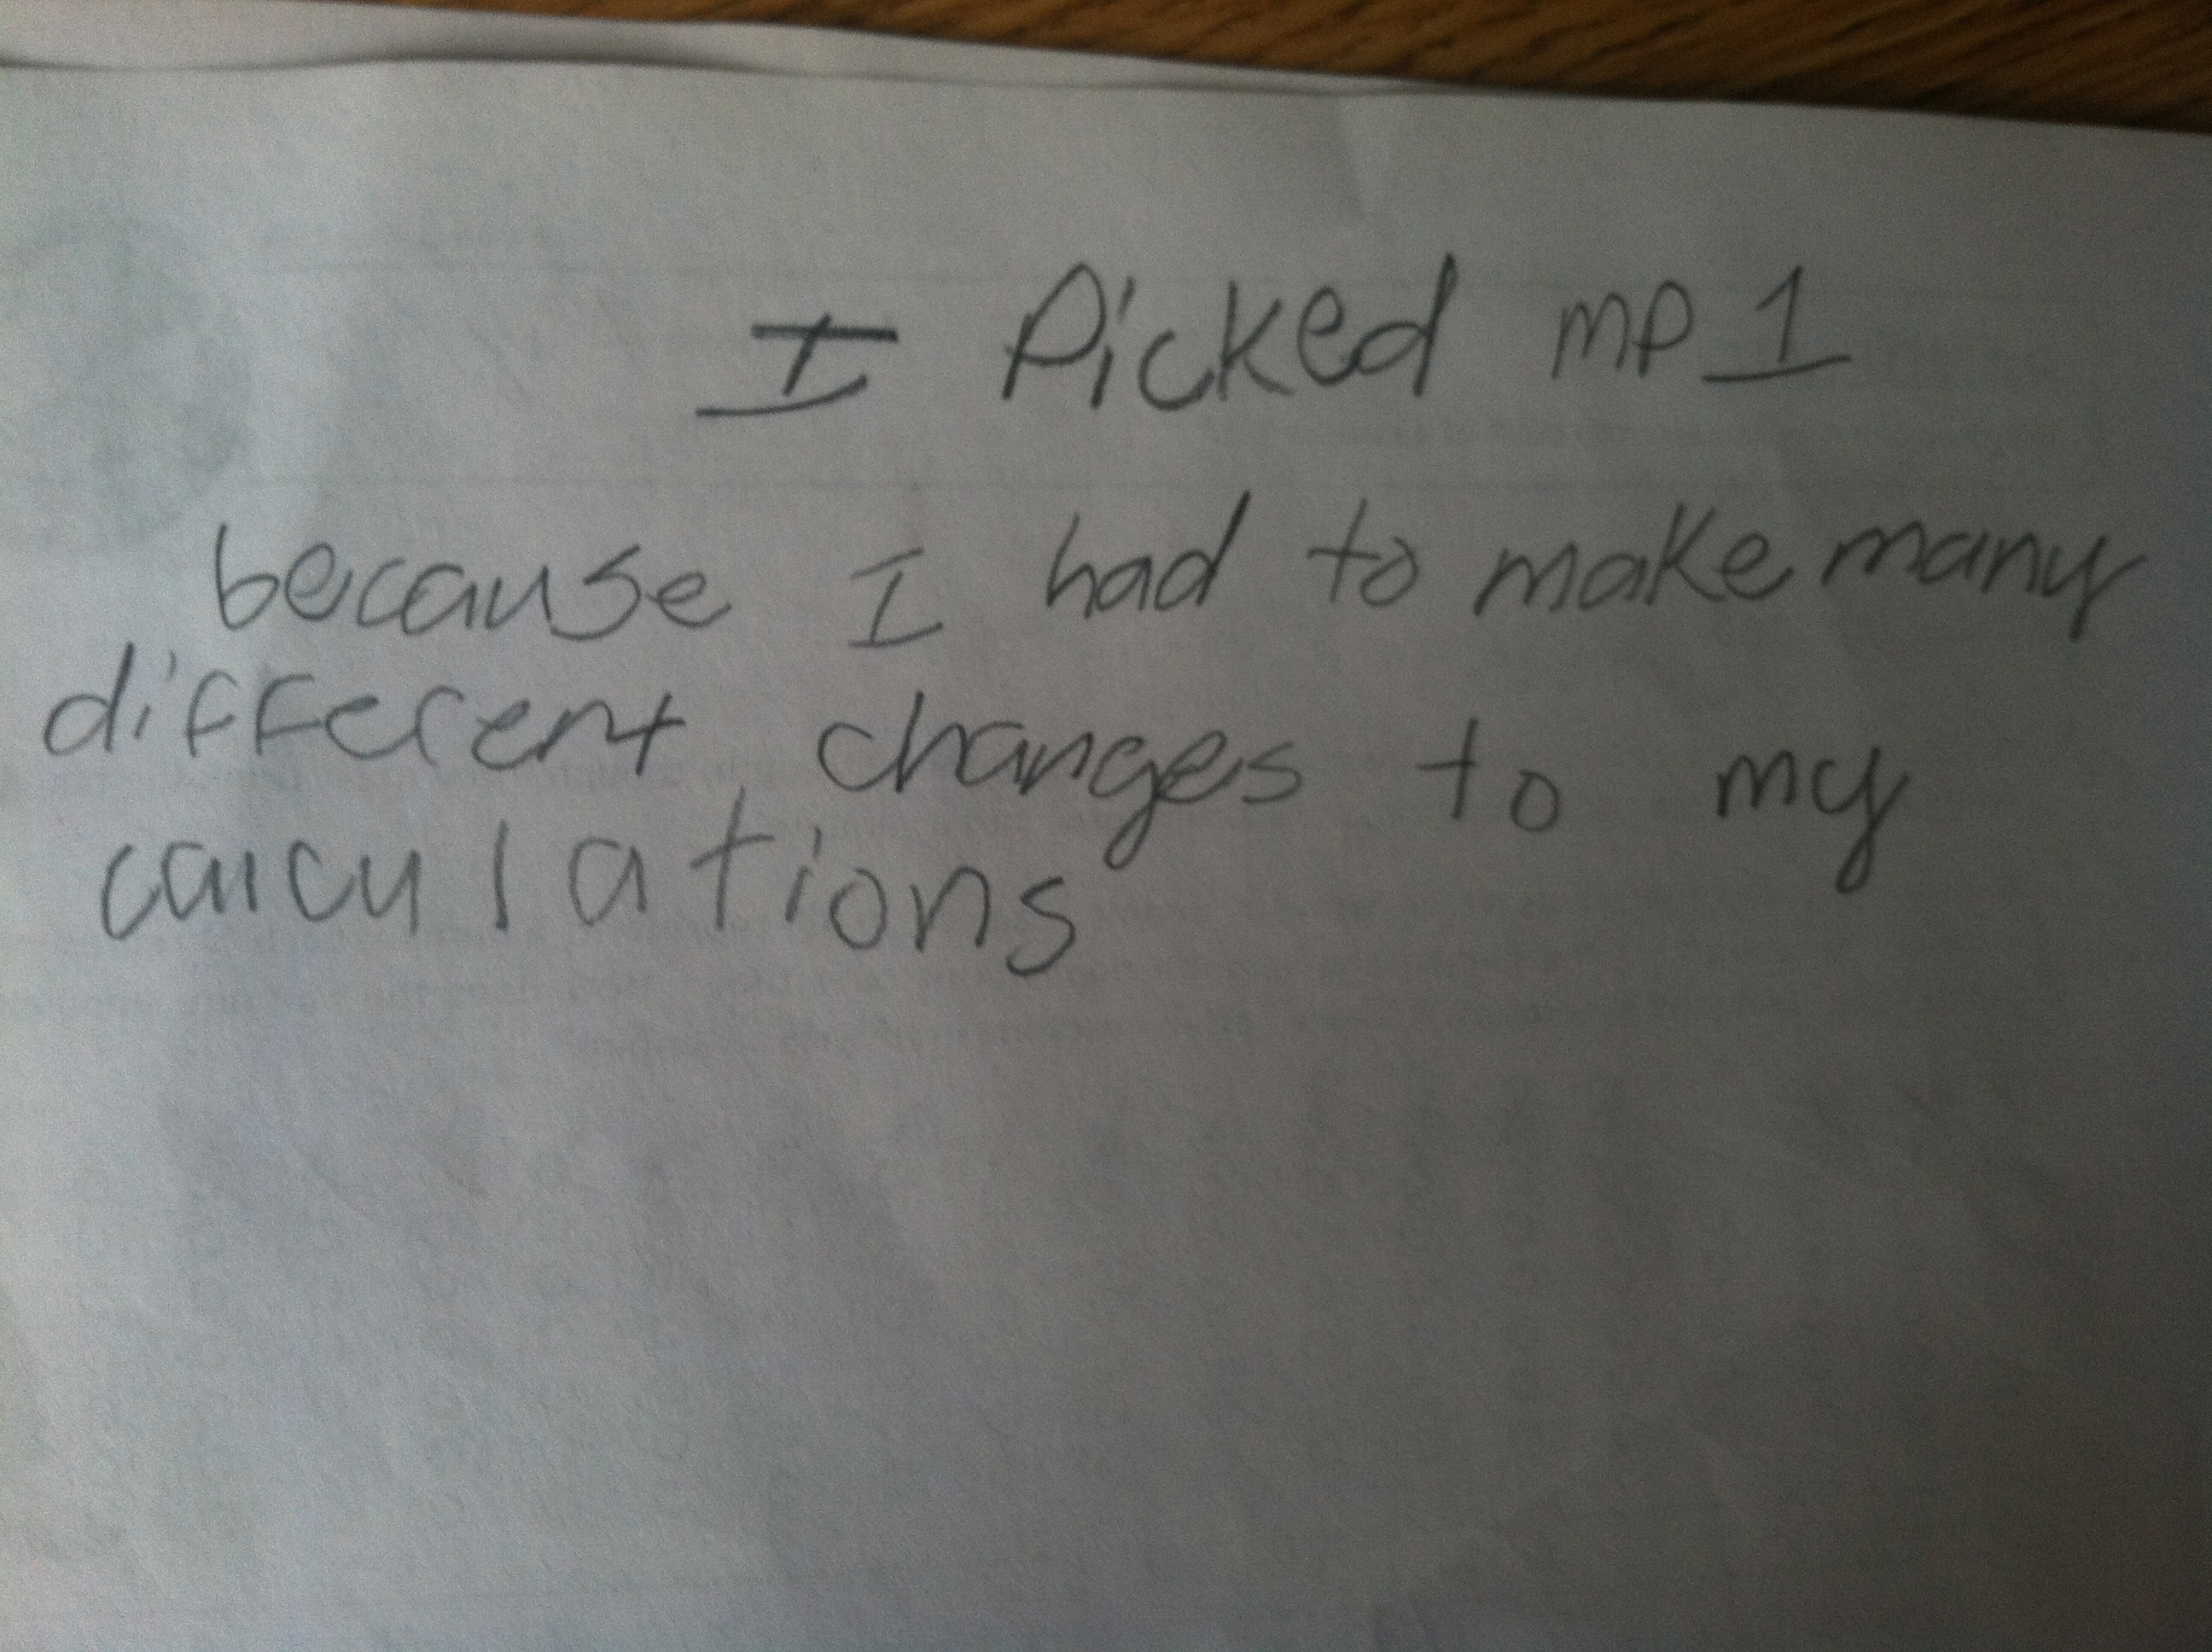 I Picked mp 1
because I had to make many
different changes to my
calculations